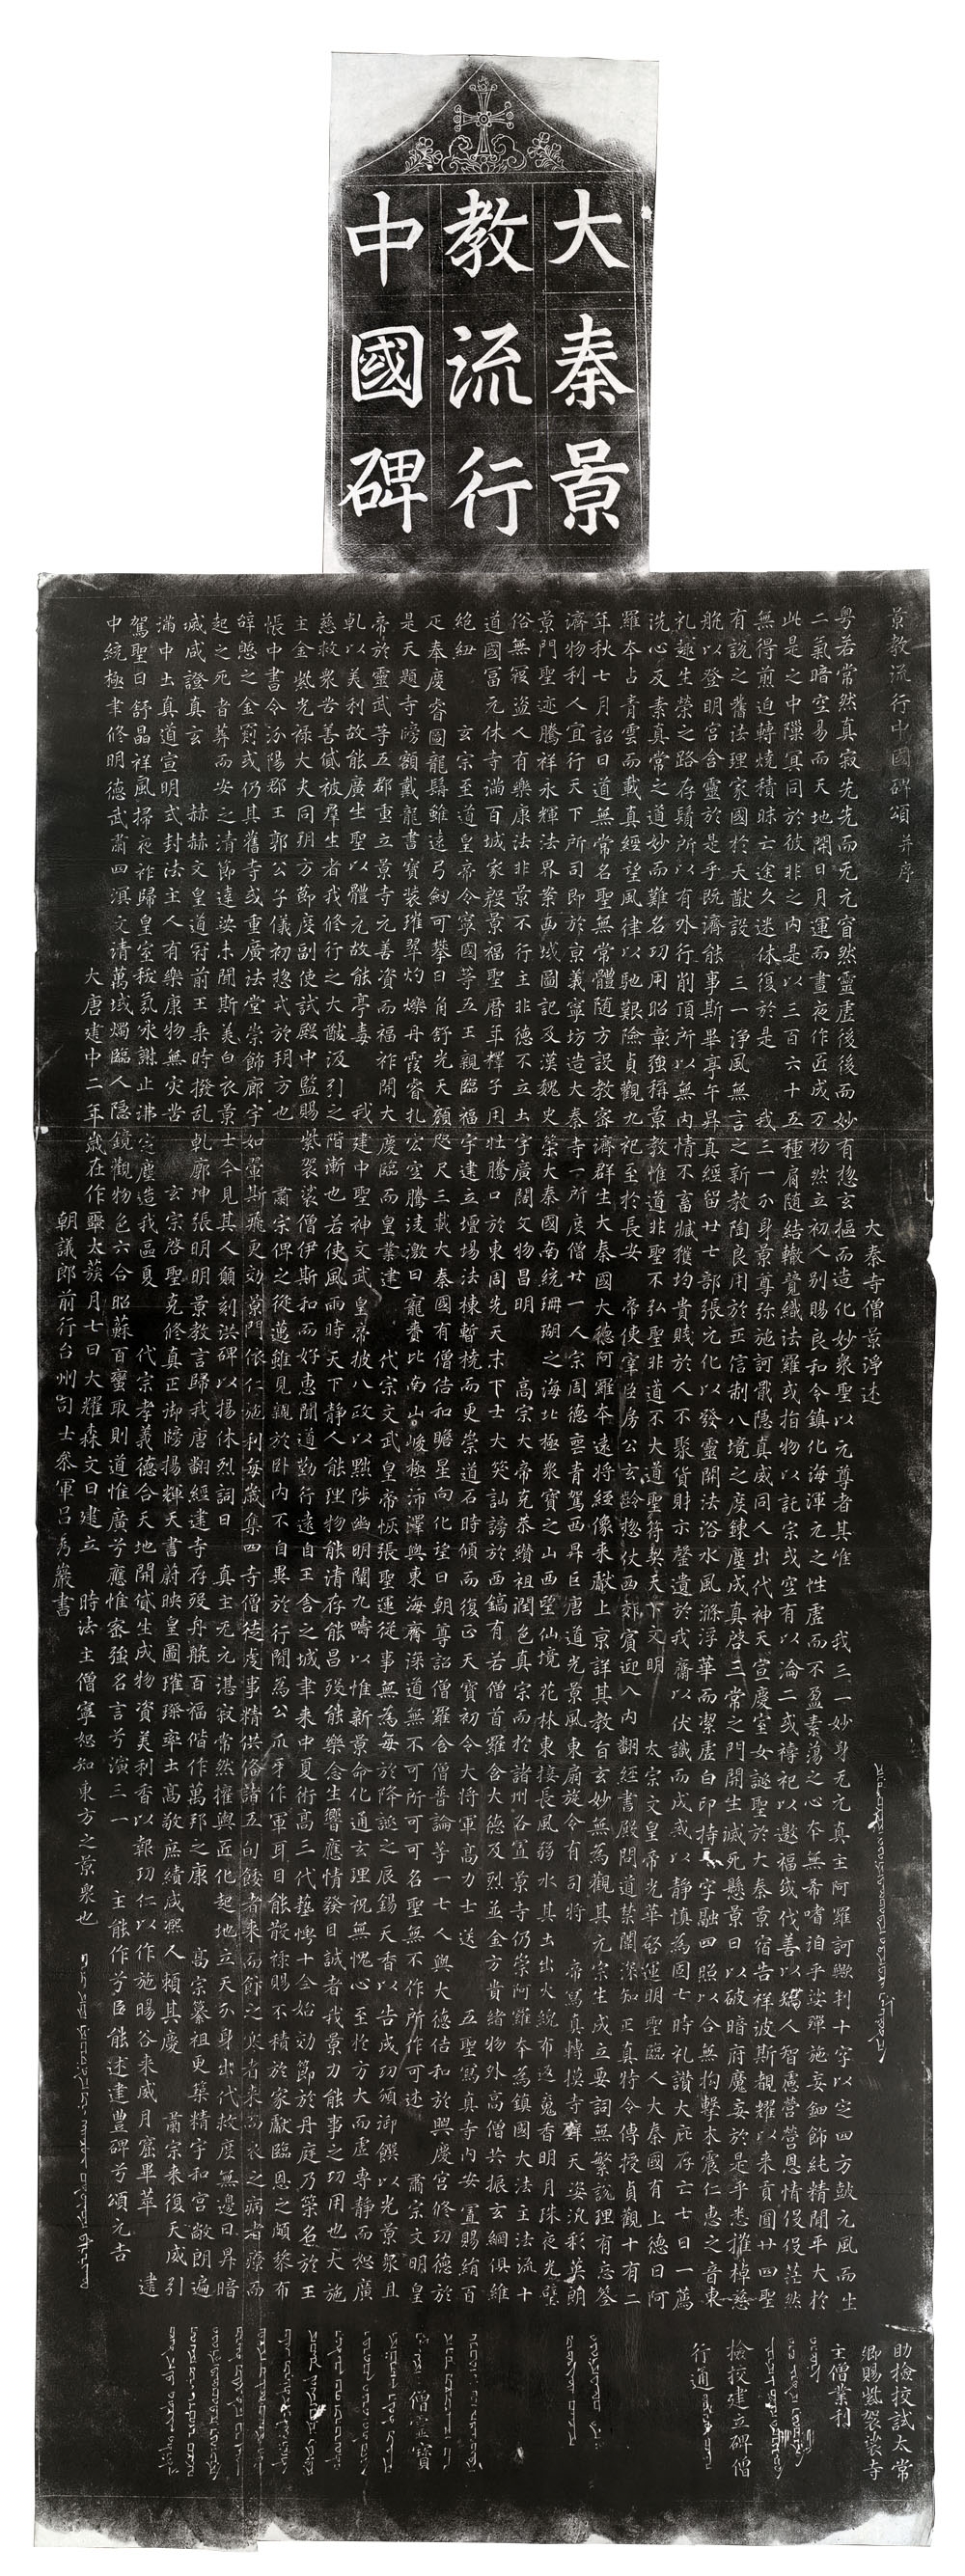 大秦景
教流行
中國碑
景教流行中國碑頌 并序
大秦寺僧景淨述
粤若常然真寂先先而无元窅然靈虛後後而妙有惣玄摳而造化妙衆聖以元尊者其唯 我三一妙身无元真主阿羅訶歟判十字以定四方鼓元風而生
二氣暗空易而天地開日月運而晝夜作匠成万物然立初人别賜良和令鎮化海渾元之性虛而不盈素蕩之心本無希嗜洎乎娑殫施妄鈿飾純精閒平大於
此是之中隟冥同於彼非之内是以三百六十五種肩隨結轍競織法羅或指物以託宗或空有以淪二或禱祀以邀福或伐善以矯人智慮營營恩情役役茫然
無得煎迫轉燒積昧亡途久迷休復於是 我三一分身景尊弥施訶戢隱真威同人出代神天宣慶室女誕聖於大秦景宿告祥波斯覩耀以来貢圓廿四聖
有說之舊法理家國於大猷設 三一淨風無言之新教陶良用於正信制八境之度鍊塵成真啓三常之門開生滅死懸景日以破暗府魔妄於是乎悉摧棹慈
航以登明宫含靈於是乎既濟能事斯畢亭午昇真經留廿七部張元化以發靈關法浴水風滌浮華而潔虛白印持十字融四照以合無拘擊木震仁惠之音東
礼趣生榮之路存鬚所以有外行削頂所以無内情不畜臧獲均貴賤於人不聚貨財示罄遺於我齋以伏識而成戒以静慎為固七時礼讃大庇存亡七日一薦
洗心反素真常之道妙而難名功用昭彰強稱景教惟道非聖不弘聖非道不大道聖符契天下文明 太宗文皇帝光華啓運明聖臨人大秦國有上德曰阿
羅本占青雲而載真經望風律以馳艱險貞觀九祀至於長安 帝使宰臣房公玄齡惣仗西郊賓迎入内翻經書殿問道禁闈深知正真特令傳授貞觀十有二
年秋七月詔曰道無常名聖無常體隨方設教密濟群生大秦國大德阿羅本遠將經像来獻上京詳其教旨玄妙無為觀其元宗生成立要詞無繁說理有忘筌
濟物利人宜行天下所司即於京義寧坊造大秦寺一所度僧廿一人宗周德喪青駕西昇巨唐道光景風東扇旋令有司將 帝寫真轉摸寺壁天姿汎彩英朗
景門聖迹騰祥永輝法界案西域圖記及漢魏史策大秦國南統珊瑚之海北極衆寶之山西望仙境花林東接長風弱水其土出火綄布返魂香明月珠夜光璧
俗無寇盜人有樂康法非景不行主非德不立土宇廣闊文物昌明 高宗大帝克恭纘祖潤色真宗而於諸州各置景寺仍崇阿羅本為鎮國大法主法流十
道國富元休寺滿百城家殷景福聖曆年釋子用壯騰口於東周先天末下士大笑訕謗於西鎬有若僧首羅含大德及烈並金方貴緒物外高僧共振玄綱俱維
絕紐 玄宗至道皇帝令寧國等五王親臨福宇建立壇場法棟暫橈而更崇道石時傾而復正天寶初令大將軍高力士送 五聖寫真寺内安置賜絹百
疋奉慶睿圖龍髯雖遠弓劔可攀日角舒光天顔咫尺三載大秦國有僧佶和瞻星向化望日朝尊詔僧羅含僧普論等一七人與大德佶和於興慶宫修功德於
是天題寺牓額戴龍書寶裝璀翠灼爍丹霞睿扎宏空騰淩激日寵賚比南山峻極沛澤與東海齊深道無不可所可可名聖無不作所作可述 肅宗文明皇
帝於靈武等五郡重立景寺元善資而福祚開大慶臨而皇業建 代宗文武皇帝恢張聖運從事無為每於降誕之辰錫天香以告成功頒御饌以光景衆且
乹以美利故能廣生聖以體元故能亭毒 我建中聖神文武皇帝披八政以黜陟幽明闡九疇以惟新景命化通玄理祝無愧心至於方大而虛專静而恕廣
慈救衆苦善貸被群生者我修行之大猷汲引之階漸也若使風雨時天下静人能理物能清存能昌殁能樂念生響應情發目誠者我景力能事之功用也大施
主金紫光祿大夫同朔方節度副使試殿中監賜紫袈裟僧伊斯和而好惠聞道勤行遠自王舍之城聿来中夏術高三代藝博十全始効節於丹庭乃策名於王
帳中書令汾陽郡王郭公子儀初惣戎於朔方也 肅宗俾之從邁雖見親於卧内不自異於行間為公爪牙作軍耳目能散祿賜不積於家獻臨恩之頗黎布
辭憩之金罽或仍其舊寺或重廣法堂崇飾廊宇如翬斯飛更効景門依仁施利每歲集四寺僧徒虔事精供備諸五旬餧者来而飰之寒者来而衣之病者療而
起之死者葬而安之清節達娑未聞斯美白衣景士今見其人願刻洪碑以揚休烈詞曰 真主无元湛寂常然權輿匠化起地立天分身出代救度無邊日昇暗
滅咸證真玄 赫赫文皇道冠前王乗時撥乱乹廓坤張明明景教言歸我唐翻經建寺存殁舟航百福偕作萬邦之康 高宗纂祖更築精宇和宫敞朗遍
滿中土真道宣明式封法主人有樂康物無灾苦 玄宗啓聖克修真正御牓揚輝天書蔚映皇圖璀璨率土高敬庶績咸熙人賴其慶 肅宗来復天威引
駕聖日舒晶祥風掃夜祚歸皇室祅氛永謝止沸定塵造我區夏 代宗孝義德合天地開貸生成物資美利香以報功仁以作施暘谷来威月窟畢萃 建
中統極聿修明德武肅四溟文清萬域燭臨人隱鏡觀物色六合昭蘇百蠻取則道惟廣兮應惟密強名言兮演三一 主能作兮臣能述建豐碑兮頌元吉
大唐建中二年歲在作噩太蔟月七日大耀森文日建立 時法主僧寧恕知東方之景衆也
朝議郎前行台州司士參軍吕秀巖書
助撿挍試太常
卿賜紫袈裟寺
主僧業利
撿挍建立碑僧
行通
僧靈寶